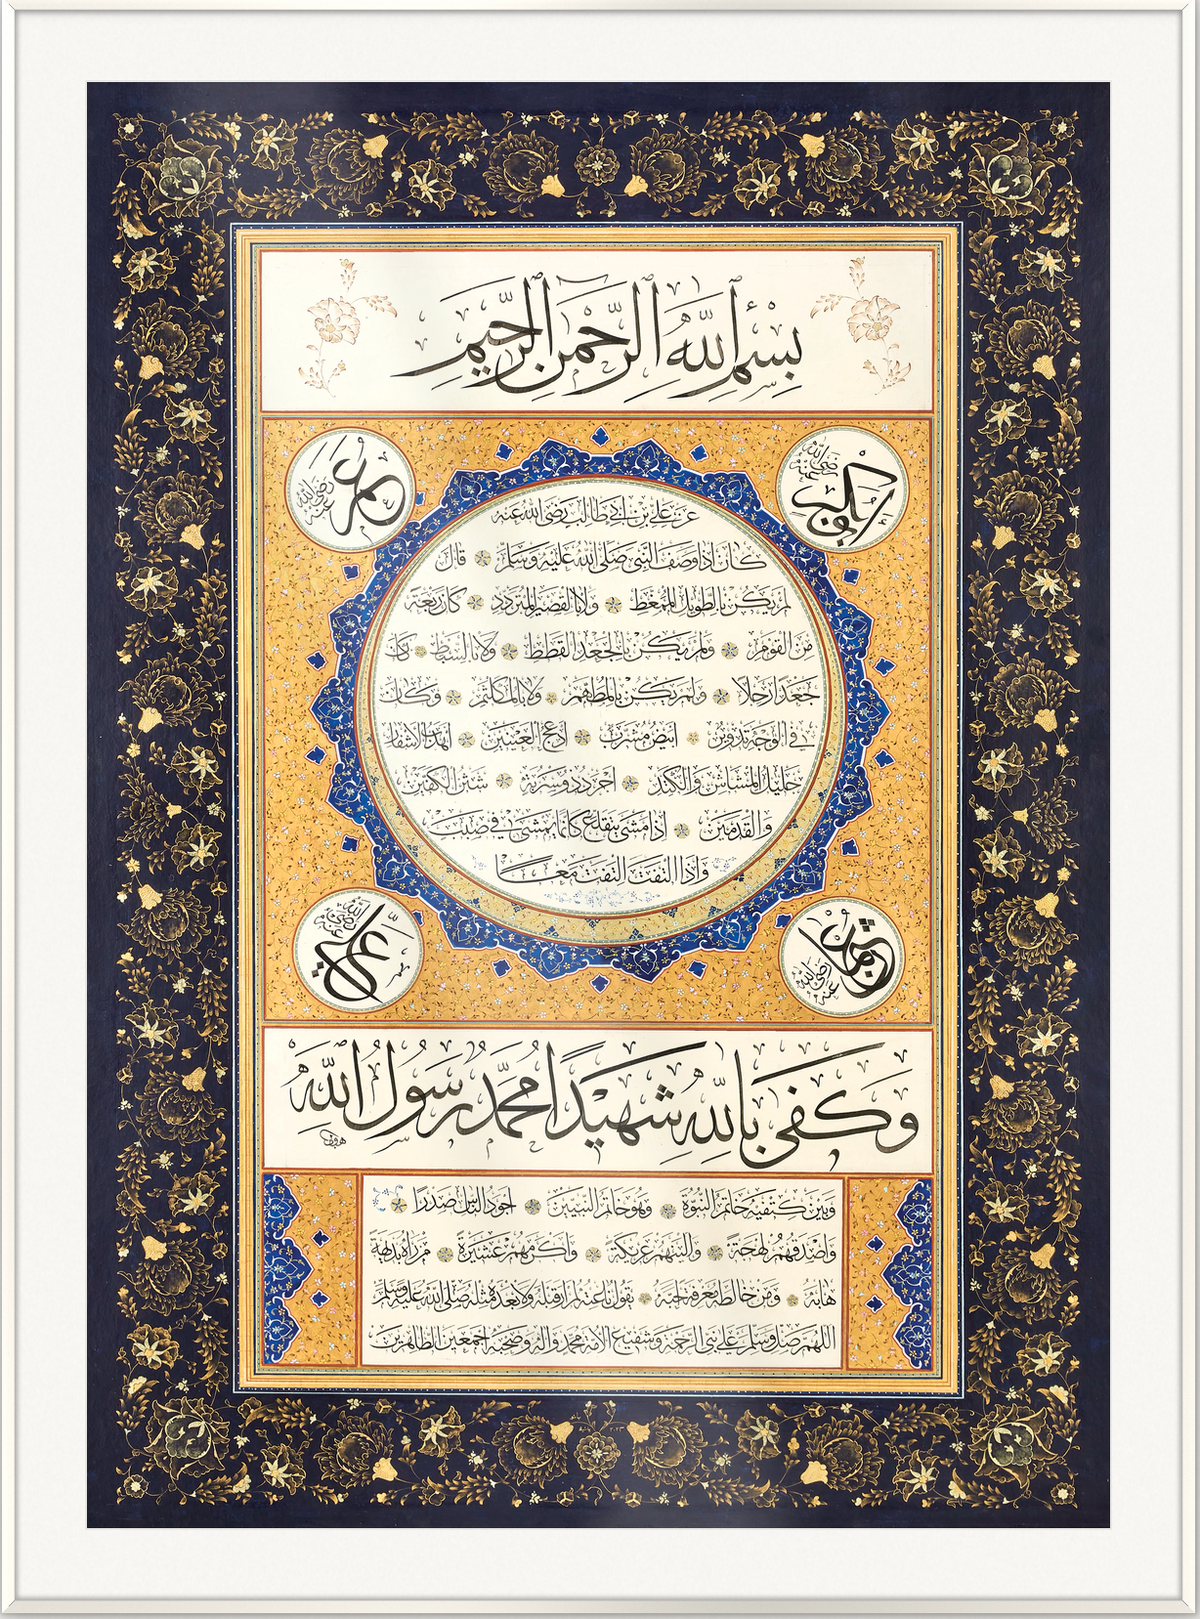 بِسْمِ ٱللَّهِ ٱلرَّحْمَنِ ٱلرَّحِيمِ
ابو بكر رضي الله عنه
عمر رضي الله عنه
عن علي بن ابي طالب رضي الله عنه
كان اذا وصف النبي صلى الله عليه وسلم قال
لم يكن بالطويل الممغط ولا بالقصير المتردد كان ربعة
من القوم ولم يكن بالجعد القطط ولا بالسبط كان
جعدا رجلا ولم يكن بالمطهم ولا بالمكلثم وكان
في الوجه تدوير ابيض مشرب ادعج العينين اهدب الاشفار
جليل المشاش والكتد اجرد ذو مسربة شثن الكفين
والقدمين اذا مشى يتقلع كانما يمشي في صبب
واذا التفت التفت معا
عثمان رضي الله عنه
علي رضي الله عنه
وَكَفَى بِاللَّهِ شَهِيدًا مُحَمَّدٌ رَسُولُ اللَّهِ
وبين كتفيه خاتم النبوة وهو خاتم النبيين اجود الناس صدرا
واصدقهم لهجة والينهم عريكة واكرمهم عشيرة من راه بديهة
هابه ومن خالطه معرفة احبه يقول ناعته لم ار قبله ولا بعده مثله صلى الله عليه وسلم
اللهم صل وسلم على نبي الرحمة وشفيع الامة محمد واله وصحبه اجمعين الطاهرين